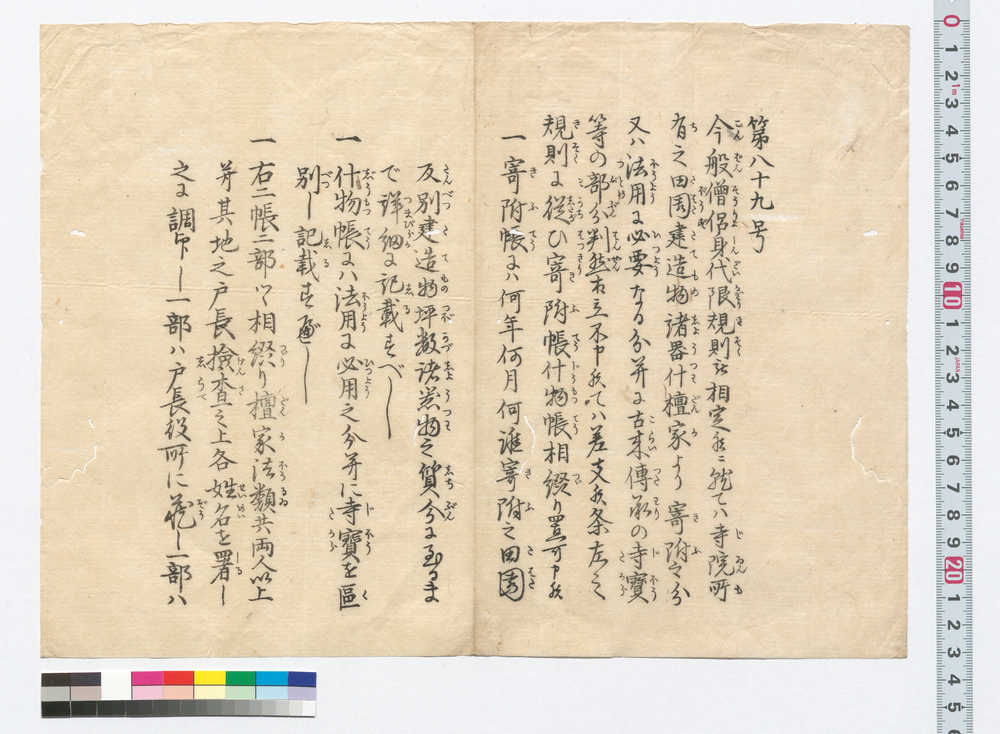 第八十九号
今般僧侶身代限規則被相定候ニ就てハ寺院所
有之田園建造物諸器什檀家より寄附之分
又ハ法用に必要なる分并に古来傳承の寺寶
等の部分判然相立不申候てハ差支候条左之
規則に従ひ寄附帳什物帳相綴り置可申候
一 寄附帳にハ何年何月何誰寄附之田園
反別建造物坪数諸器物之質分に至るま
で詳細に記載すべし
一 什物帳にハ法用に必用之分并に寺寶を區
別し記載す可し
一 右二帳二部ツヽ相綴り檀家法類共両人以上
并其地之戸長撿査之上各姓名を署し
之に調印し一部ハ戸長役所に蔵し一部ハ